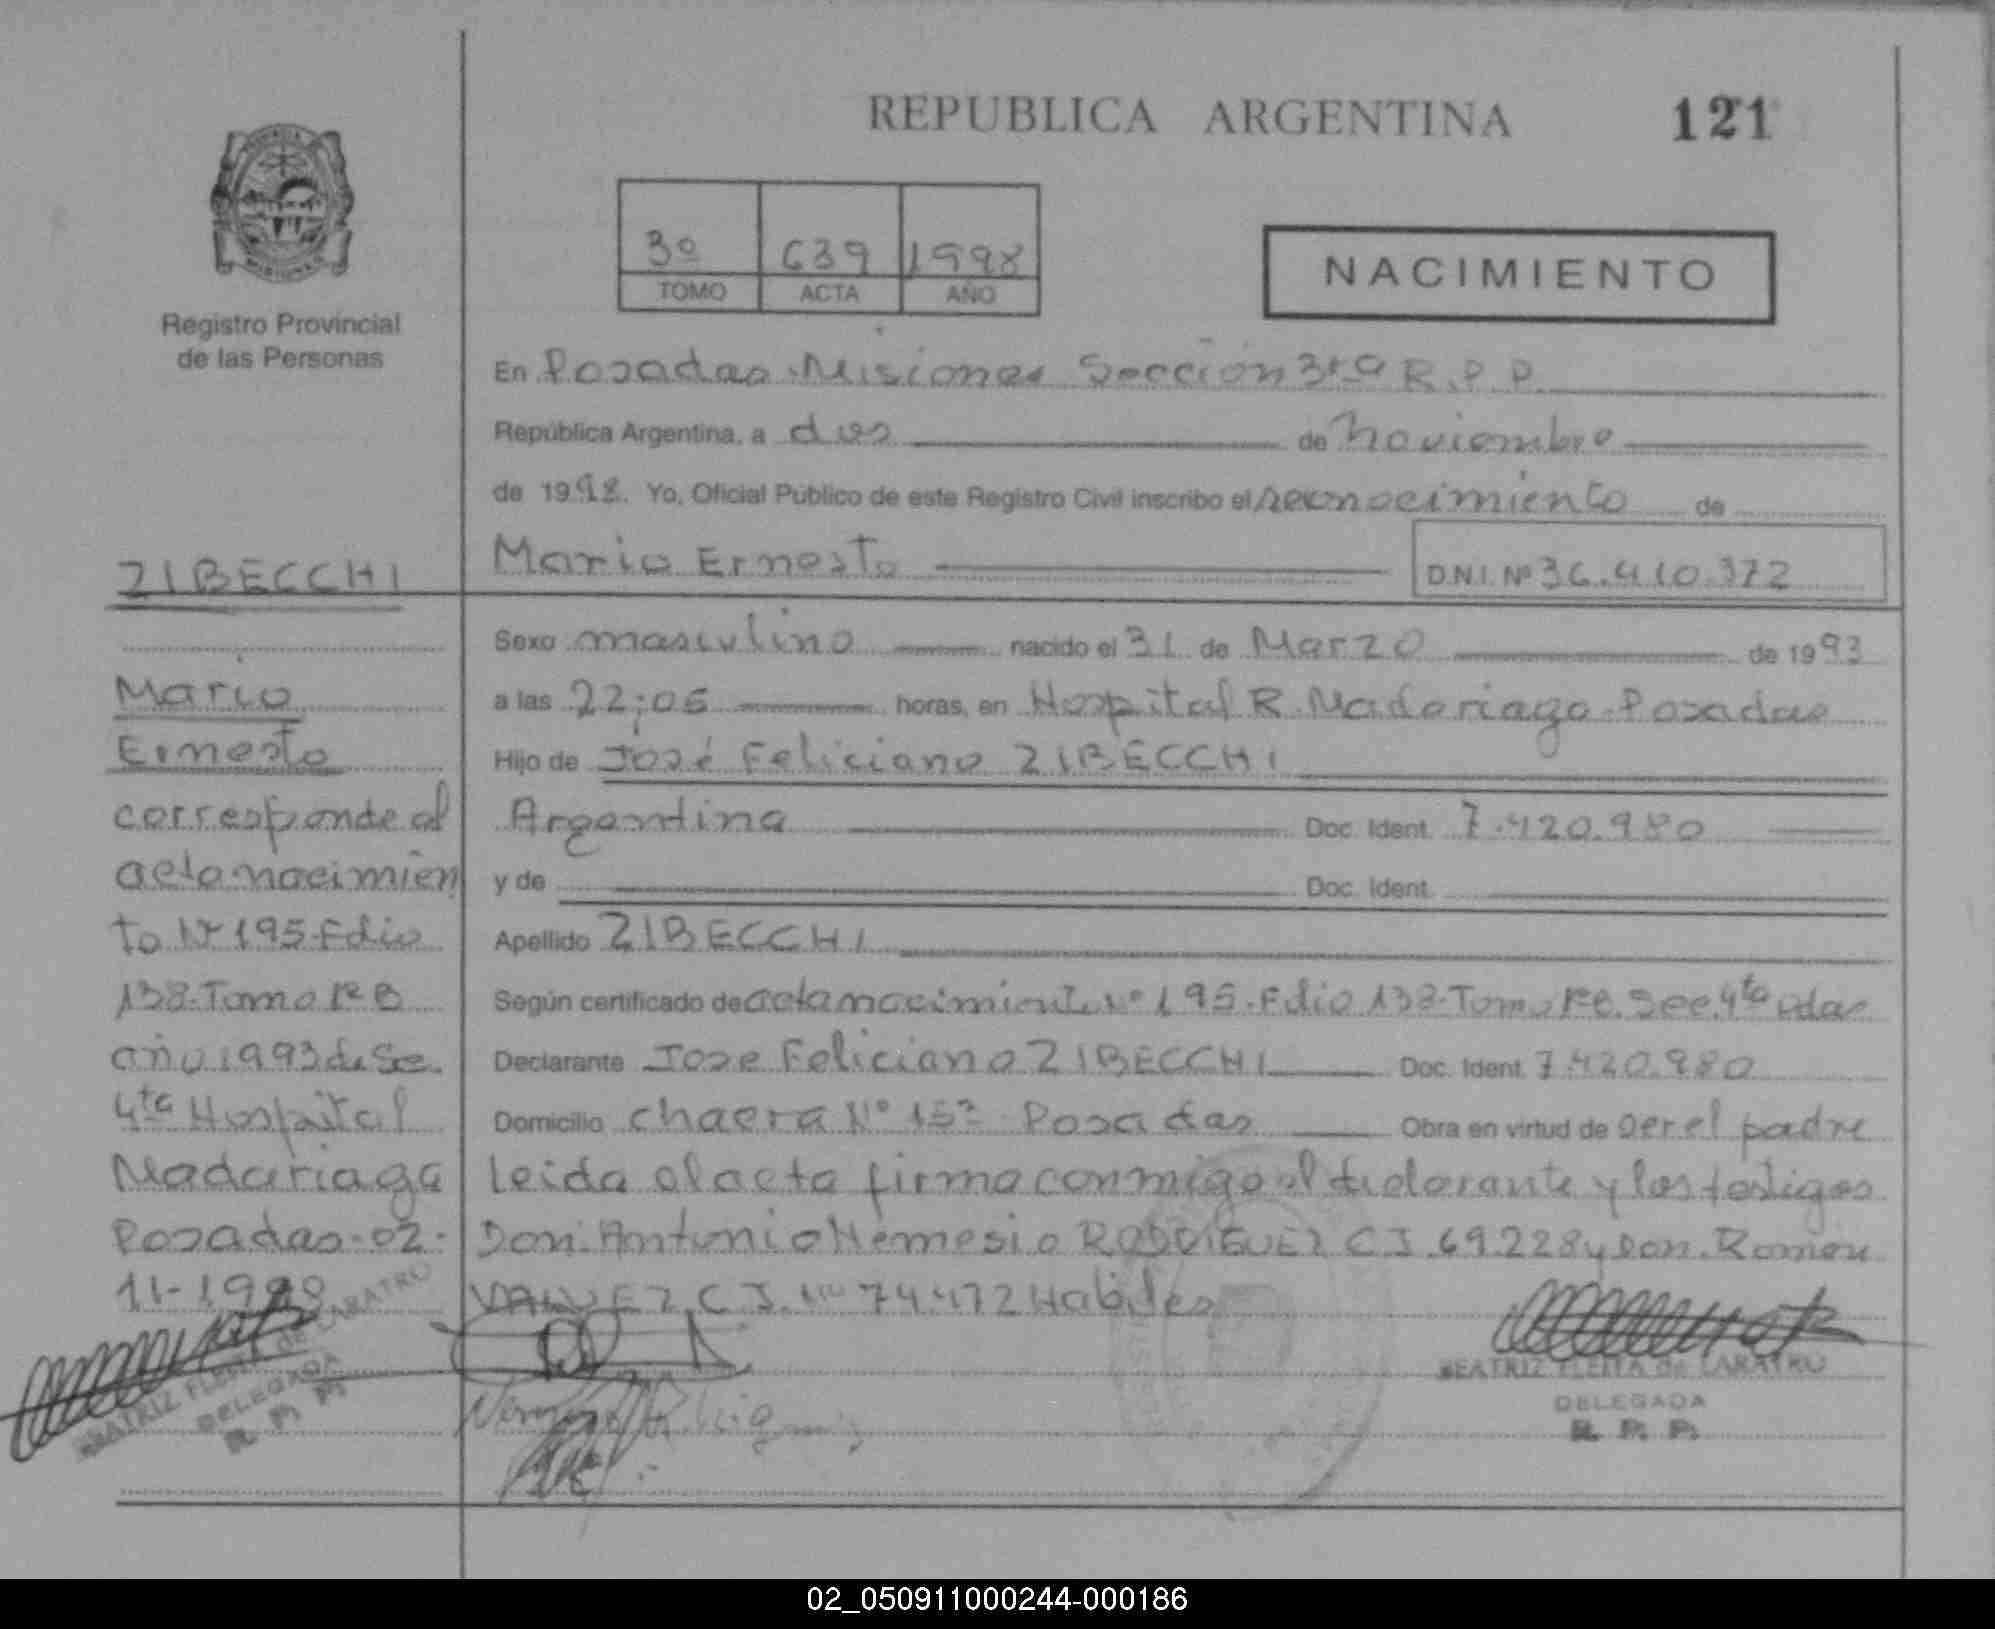 REPUBLICA ARGENTINA 121
3º 639 1998
TOMO ACTA AÑO
NACIMIENTO
Registro Provincial
de las Personas
En Posadas Misiones Sección 3ra R.P.P.
República Argentina, a dos de noviembre
de 1998. Yo, Oficial Público de este Registro Civil inscribo el reconocimiento de
Mario Ernesto D.N.I. Nº 36.410.372
Sexo masculino nacido el 31 de Marzo de 1993
a las 22:05 horas, en Hospital R. Madariaga-Posadas
Hijo de José Feliciano ZIBECCHI
Argentina Doc. Ident. 7.420.980
y de Doc. Ident.
Apellido ZIBECCHI
Según certificado de acta nacimiento Nº 195-Folio 138-Tomo 1ºB. Sec. 4ta Pdas
Declarante Jose Feliciano ZIBECCHI Doc. Ident. 7.420.980
Domicilio chacra Nº 152 Posadas Obra en virtud de ser el padre
leida el acta firma conmigo el declarante y los testigos
Don: Antonio Nemesio RODRIGUEZ C.I. 69.228 y Don. Ramon
C.I. Nº 74.472 Habiles
ZIBECCHI
Mario
Ernesto
corresponde al
acta nacimien
to Nº 195-Folio
138-Tomo 1ºB
año 1993 de Sec.
4ta Hospital
Madariaga
Posadas-02-
11-1998
BEATRIZ FLEITA de LARATRO
DELEGADA
R. P. P.
BEATRIZ FLEITA de LARATRO
DELEGADA
R. P. P.
02_050911000244-000186